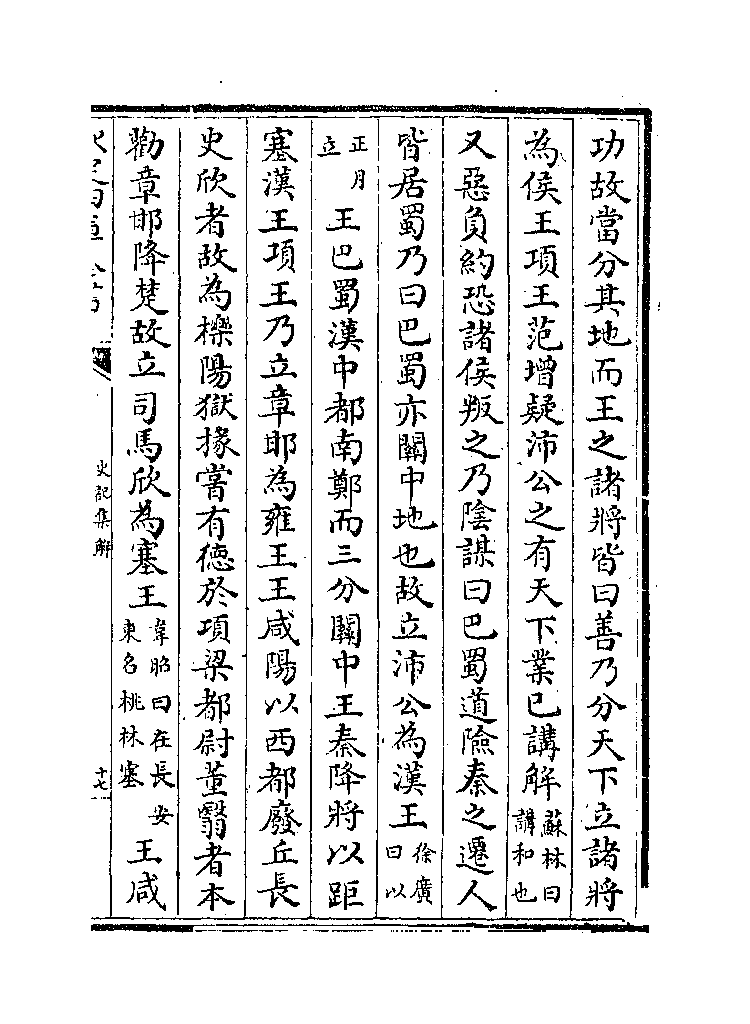 功故當分其地而王之諸將皆曰善乃分天下立諸將
為侯王項王范增疑沛公之有天下業已講解蘇林曰講和也
又惡負約恐諸侯叛之乃陰謀曰巴蜀道險秦之遷人
皆居蜀乃曰巴蜀亦關中地也故立沛公為漢王徐廣曰以
正月立王巴蜀漢中都南鄭而三分關中王秦降將以距
塞漢王項王乃立章邯為雍王王咸陽以西都廢丘長
史欣者故為櫟陽獄掾嘗有德於項梁都尉董翳者本
勸章邯降楚故立司馬欣為塞王韋昭曰在長安東名桃林塞王咸
史記集解
十七